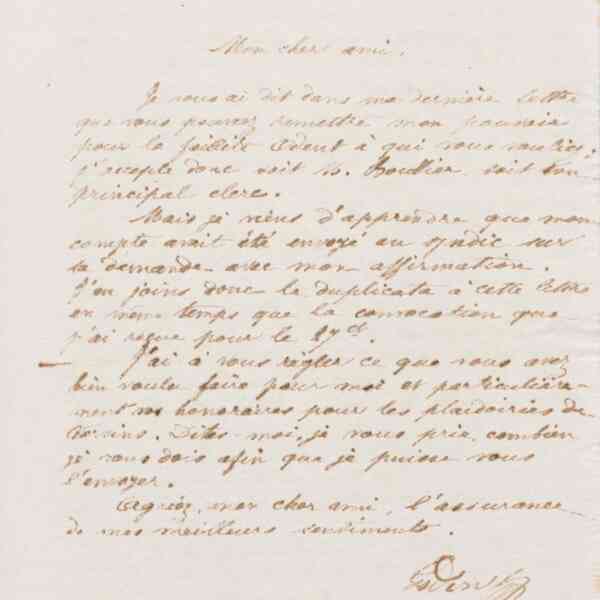 Mon cher ami,
Je vous ai dit dans ma dernière lettre
que vous pouvez remettre mon pouvoir
pour la faillite à qui vous voulez.
j'accepte donc soit M. soit son
principal clerc.
Mais je viens d'apprendre que mon
compte avait été envoyé au syndic sur
sa demande avec mon affirmation.
J'en joins donc le duplicata à cette lettre
en même temps que la convocation que
j'ai reçue pour le
J'ai à vous régler ce que vous avez
bien voulu faire pour moi et particulière-
ment vos honoraires pour les plaidoiries de
Dites-moi, je vous prie, combien
je vous dois afin que je puisse vous
l'envoyer.
Agréez, mon cher ami, l'assurance
de mes meilleurs sentiments.